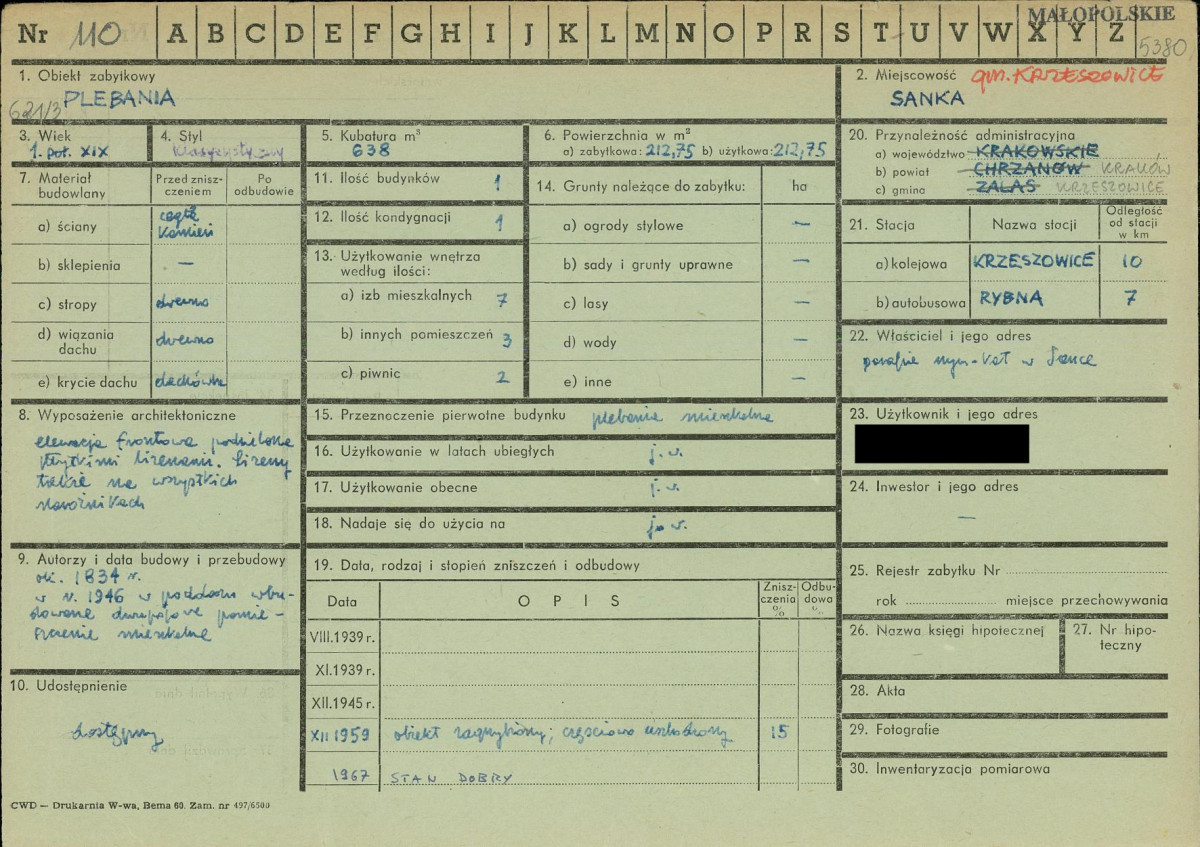 MAŁOPOLSKIE
Nr 110 A B C D E F G H I J K L M N O P R S T U V W X Y Z
5380
1. Obiekt zabytkowy
621/3 PLEBANIA
2. Miejscowość gm. KRZESZOWICE
SANKA
3. Wiek
1. poł. XIX
4. Styl
klasycystyczny
5. Kubatura m³
638
6. Powierzchnia w m²
a) zabytkowa: 212,75 b) użytkowa: 212,75
20. Przynależność administracyjna
a) województwo KRAKOWSKIE
b) powiat CHRZANÓW KRAKÓW
c) gmina ZALAS KRZESZOWICE
7. Materiał budowlany
Przed zniszczeniem
Po odbudowie
a) ściany cegła kamień
b) sklepienia —
c) stropy drewno
d) wiązania dachu drewno
e) krycie dachu dachówka
11. Ilość budynków 1
12. Ilość kondygnacji 1
13. Użytkowanie wnętrza
według ilości:
a) izb mieszkalnych 7
b) innych pomieszczeń 3
c) piwnic 2
14. Grunty należące do zabytku: ha
a) ogrody stylowe —
b) sady i grunty uprawne —
c) lasy —
d) wody —
e) inne —
21. Stacja
Nazwa stacji
Odległość
od stacji
w km
a) kolejowa KRZESZOWICE 10
b) autobusowa RYBNA 7
22. Właściciel i jego adres
parafia rzym-kat w Sance
8. Wyposażenie architektoniczne
elewacja frontowa podzielona
płytkimi lizenami. Lizeny
także na wszystkich
narożnikach
15. Przeznaczenie pierwotne budynku plebania mieszkalna
16. Użytkowanie w latach ubiegłych j. w.
17. Użytkowanie obecne j. w.
18. Nadaje się do użycia na j. w.
23. Użytkownik i jego adres
24. Inwestor i jego adres
—
9. Autorzy i data budowy i przebudowy
ok. 1834 r.
w r. 1946 w poddaszu wbu-
dowane dwupokojowe pomie-
szczenie mieszkalne
10. Udostępnienie
dostępny
19. Data, rodzaj i stopień zniszczeń i odbudowy
Data
OPIS
Zniszczenia %
Odbudowa %
VIII.1939 r.
XI.1939 r.
XII.1945 r.
XII 1959 obiekt zagrzybiony; częściowo uszkodzony 15
1967 STAN DOBRY
25. Rejestr zabytku Nr
rok miejsce przechowywania
26. Nazwa księgi hipotecznej
27. Nr hipo-
teczny
28. Akta
29. Fotografie
30. Inwentaryzacja pomiarowa
CWD — Drukarnia W-wa, Bema 60. Zam. nr 497/6500